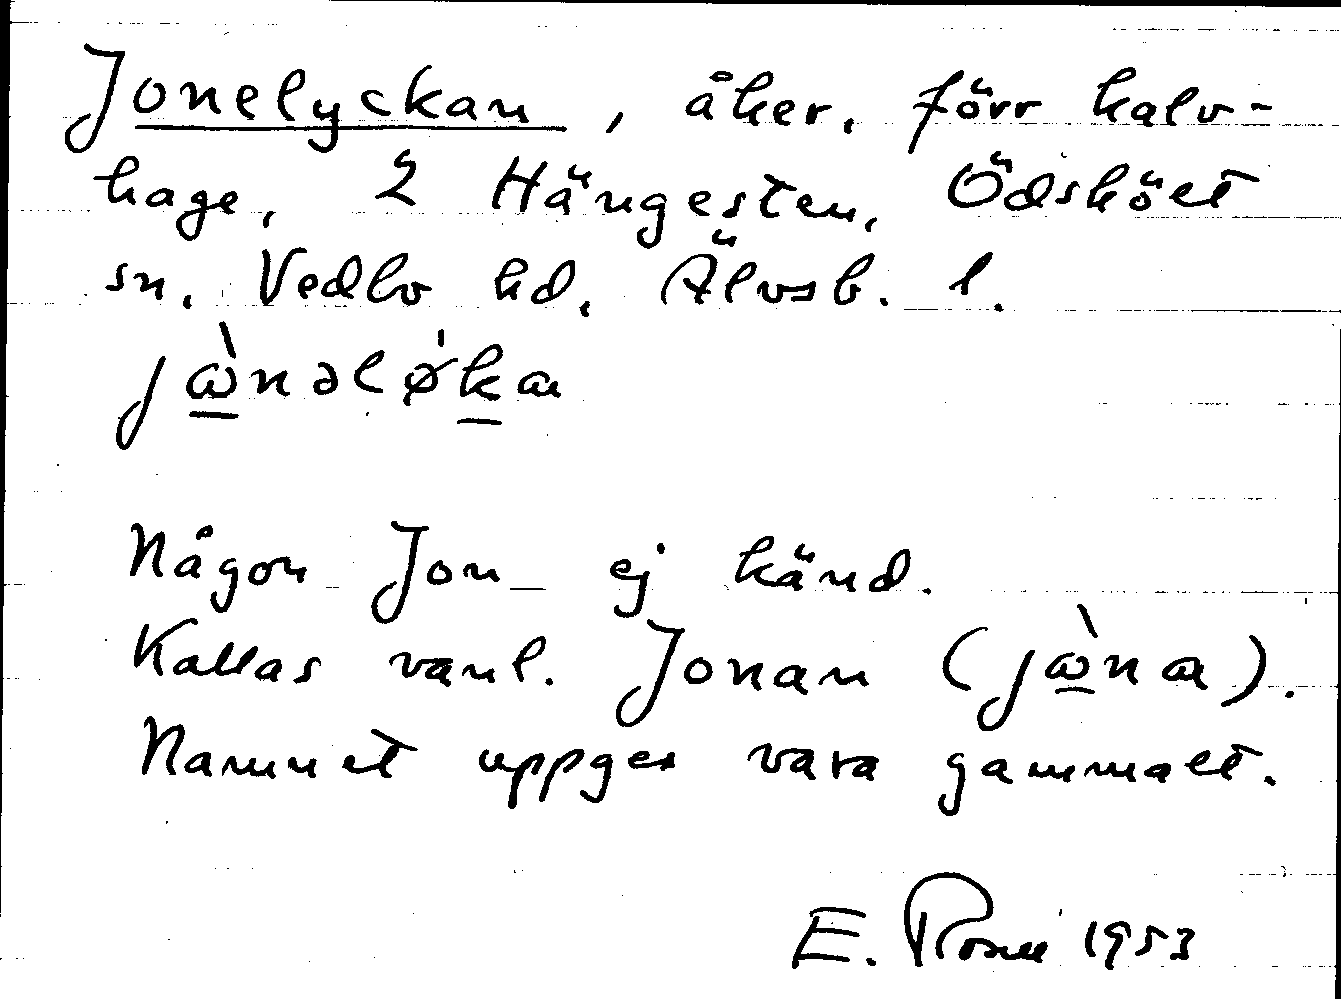 Jonelyckan, åker, förr kalv-
hage, 2 Hängesten, Ödskölt
sn, Vedbo hd, Älvsb. l.
jὼnəlǿka
Någon Jon ej känd.
Kallas vanl. Jonan (jὼna).
Namnet uppges vara gammalt.
E. Rosén 1953